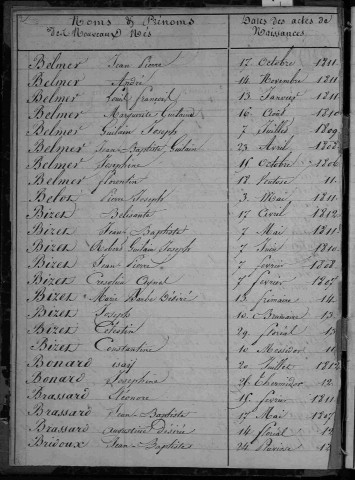 Noms & Prénoms Dates des actes de
des Nouveaux Nés Naissances
Belmer Jean Pierre 17 Octobre 1811
Belmer André 14 Novembre 1811
Belmer Louis François 13 Janvier
Belmer Marguerite Guilaine 16 Août 1810
Belmer Guilain Joseph 7 Juillet 1809
Belmer Jean-Baptiste Guilain 23 Avril
Belmer Josephine 15 Octobre 1806
Belmer florentin 18 11
Belot Pierre Joseph 3 Mai 1811
Bizet 17 Avril 1812
Bizet Jean Baptiste 7 Mai 1811
Bizet Guilain Joseph 7 Juin 1810
Bizet Jean Pierre 7 fevrier 1808
Bizet 7 fevrier 1807
Bizet Marie Désiré 13 frimaire 14
Bizet Joseph 10 Brumaire 13
Bizet Célestin 29 floréal 13
Bizet Constantine 10 Messidor 11
Bonard 20 Juillet 1812
Bonard Josephine 26 Thermidor 12
Brassard Eléonore 15 fevrier 1811
Brassard Jean Baptiste 17 Mai 1807
Brassard augustine Désirée 14 floréal 12
Bridoux Jean-Baptiste 24